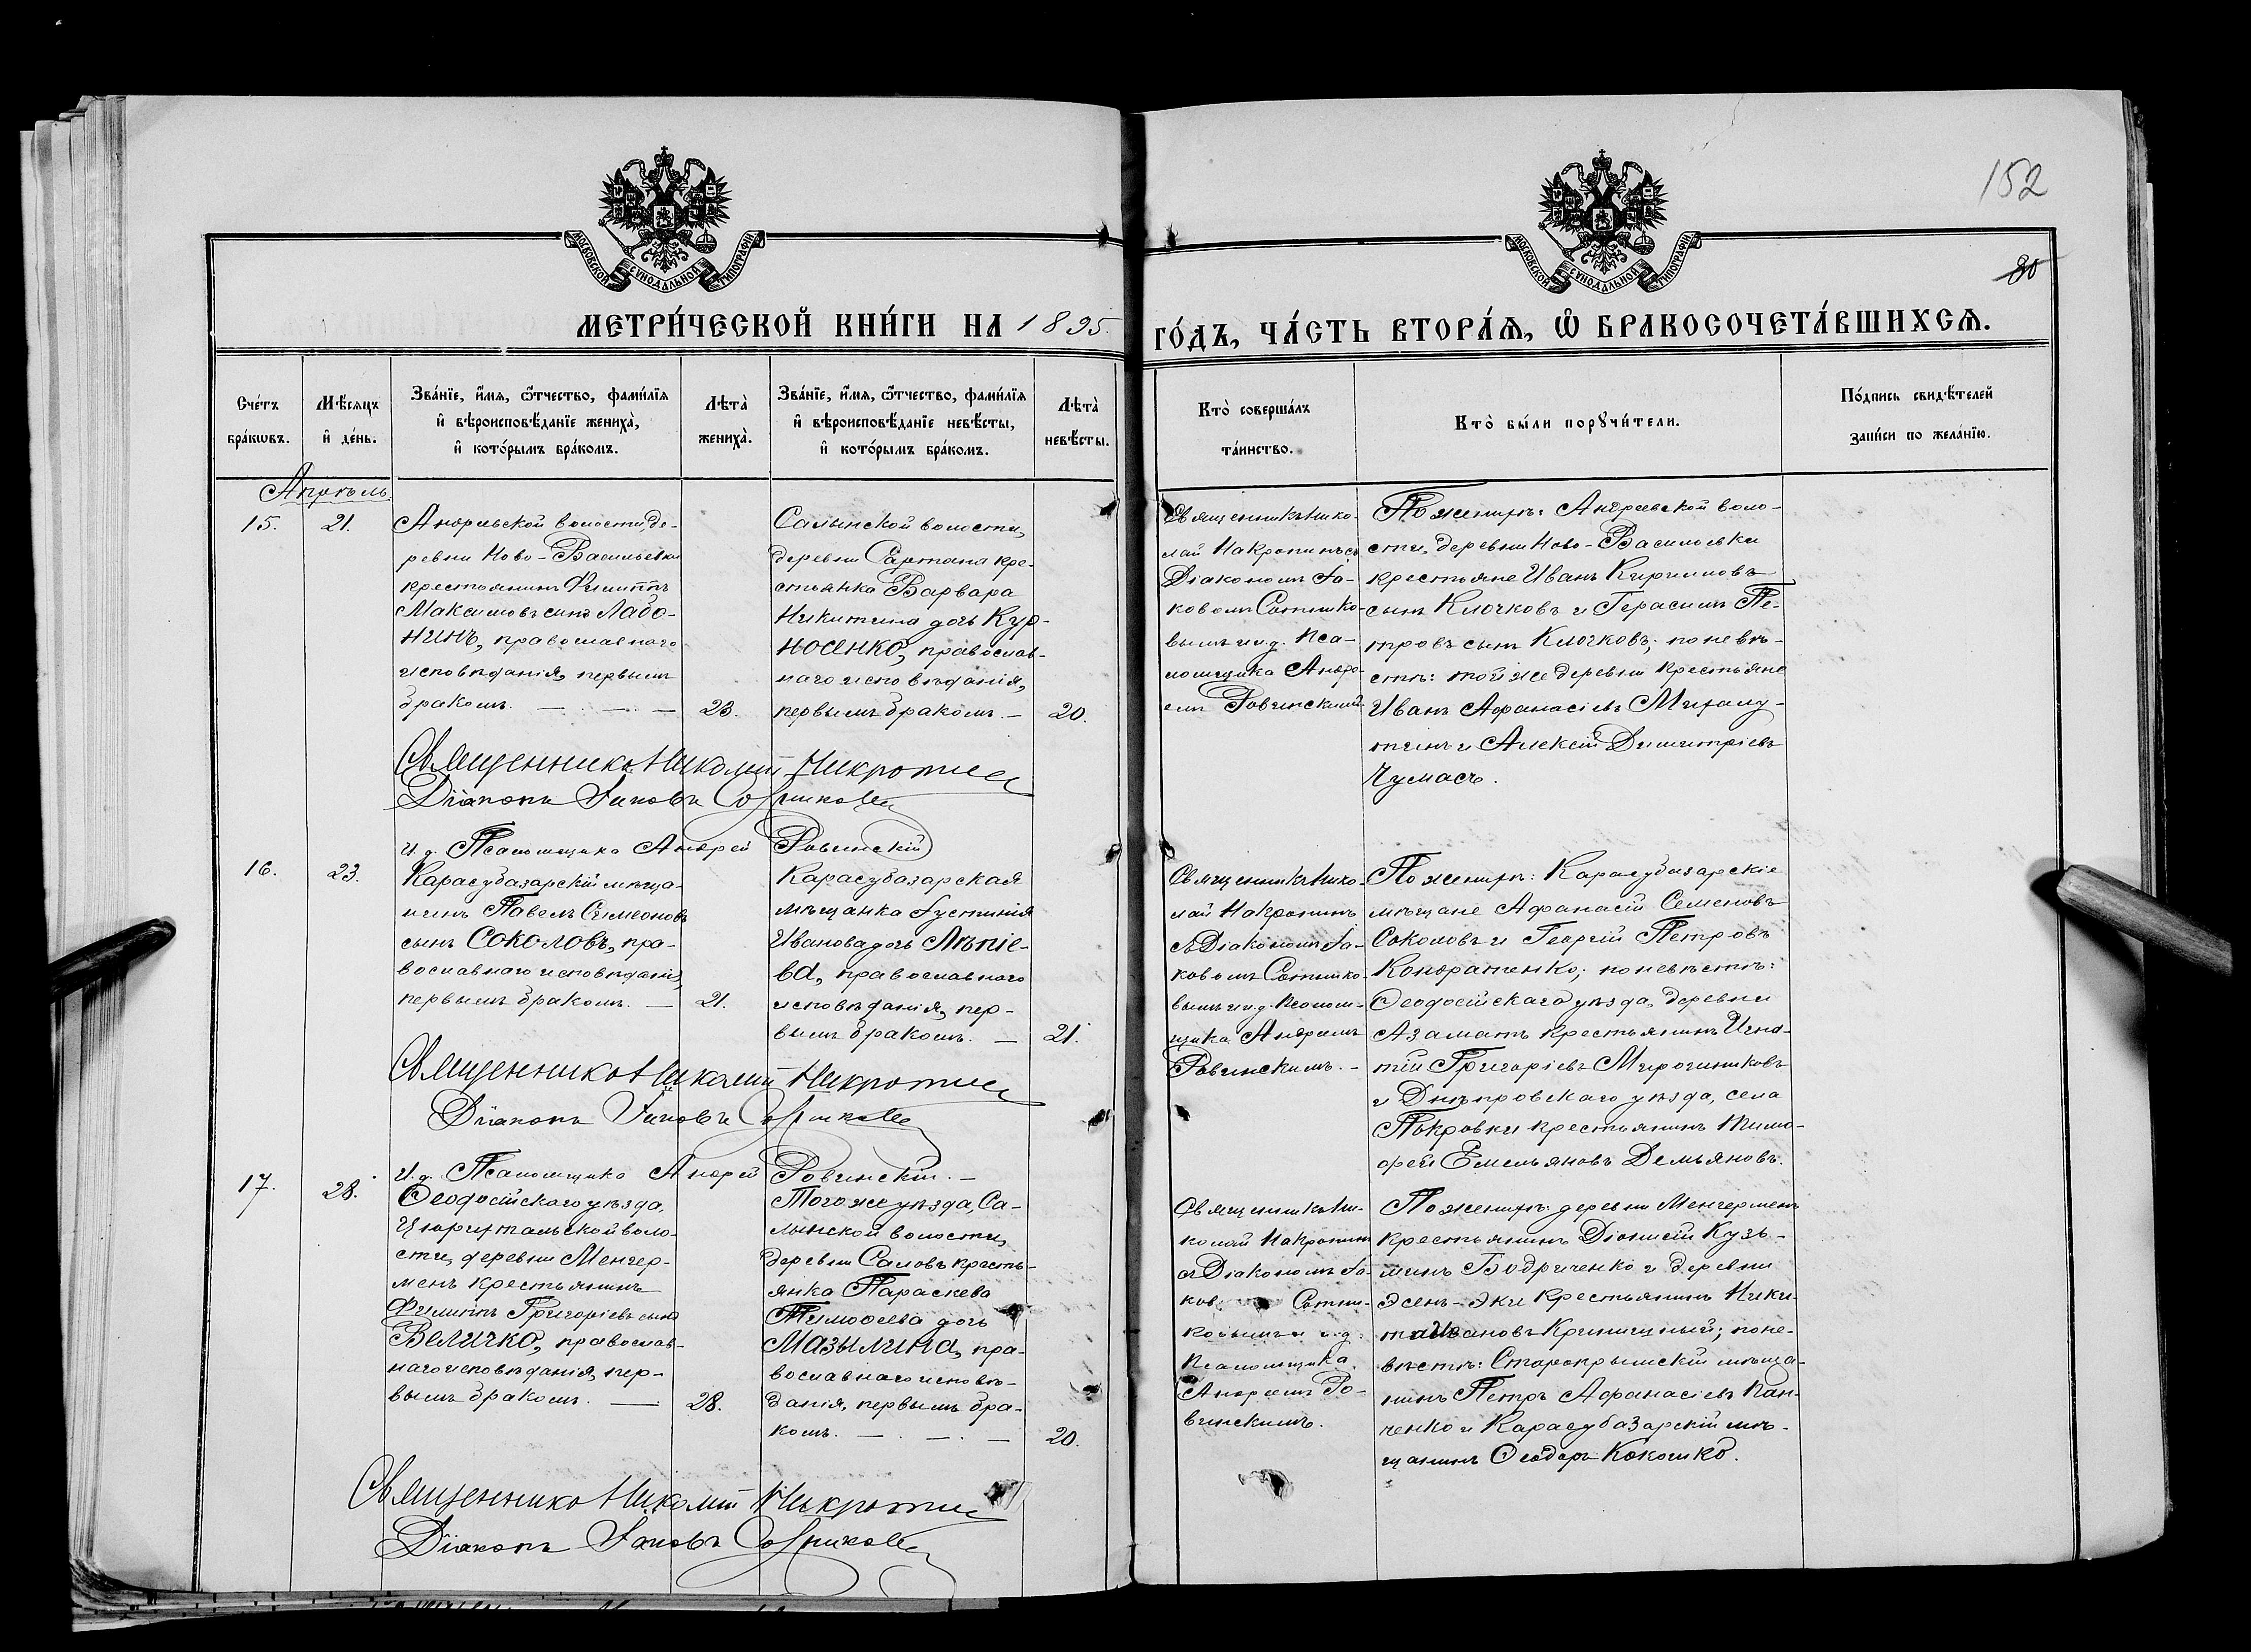 152
80
МОСКОВСКОЙ СѴНОДАЛЬНОЙ ТИПОГРАФІИ
МОСКОВСКОЙ СѴНОДАЛЬНОЙ ТИПОГРАФІИ
МЕТРИ́ЧЕСКОЙ КНИ́ГИ НА 1895.
ГО́ДЪ, ЧА́СТЬ ВТОРА́Ѧ, Ѽ БРАКОСОЧЕТА́ВШИХСѦ.
Сче́тъ бра́кѡвъ.
Мѣ́сяцъ и҆ де́нь.
Зва́нїе, и҆́мя, ѻ҆́тчество, фами́лїя
и҆ вѣроисповѣ́данїе жениха̀,
и҆ кото́рымъ бра́комъ.
Лѣта̀ жениха̀.
Зва́нїе, и҆́мя, ѻ҆́тчество, фами́лїя
и҆ вѣроисповѣ́данїе невѣ́сты,
и҆ кото́рымъ бра́комъ.
Лѣта̀ невѣ́сты.
Кто̀ соверша́лъ
та́инство.
Кто̀ бы́ли порꙋчи́тели.
По́дпись свидѣ́телей
за́писи по жела́нїю.
Апрѣль
15.
21.
Андреевской волости, де-
ревни Ново-Васильевки
крестьянинъ Филиппъ
Максимовъ сынъ Ладо-
нинъ, православнаго
исповѣданія, первымъ
бракомъ. —
23.
Салынской волости,
деревни Сартана кре-
стьянка Варвара
Никитина дочь Кур-
носенко, православ-
наго исповѣданія,
первымъ бракомъ. —
20.
Священникъ Нико-
лай
Діакономъ Іа-
ковомъ Сотнико-
вымъ и и.д. Пса-
ломщика Андре-
емъ Ровинскимъ.
По женихѣ: Андреевской воло-
сти, деревни Ново-Васильевки
крестьяне Иванъ Кирилловъ
сынъ Клочковъ и Герасимъ Пе-
тровъ сынъ Клочковъ; по невѣ-
стѣ: той же деревни крестьяне
Иванъ Афанасіевъ
и Алексій Димитріевъ
Чумасъ.
Священникъ Николай
Діаконъ Іаковъ Сотниковъ
И. д. Псаломщика Андрей Ровинскій
16.
23.
Карасубазарскій мѣща-
нинъ Павелъ Симеоновъ
сынъ Соколовъ, пра-
вославнаго исповѣданія,
первымъ бракомъ. —
21.
Карасубазарская
мѣщанка Іустинія
Иванова дочь Лѣпіе-
ва, православнаго
исповѣданія, пер-
вымъ бракомъ. —
21.
Священникъ Нико-
лай
съ Діакономъ Іа-
ковомъ Сотнико-
вымъ и и.д. Псалом-
щика Андреемъ
Ровинскимъ. —
По женихѣ: Карасубазарскіе
мѣщане Афанасій Семеновъ
Соколовъ и Георгій Петровъ
Кондратенко; по невѣстѣ:
Ѳеодосійскаго уѣзда, деревни
Азаматъ крестьянинъ Игна-
тій Григоріевъ Мирошниковъ
и Днѣпровскаго уѣзда, села
Покровки крестьянинъ Тимо-
фей Емельяновъ Демьяновъ.
Священникъ Николай
Діаконъ Іаковъ Сотниковъ
И. д. Псаломщика Андрей Ровинскій. —
17.
28.
Ѳеодосійскаго уѣзда,
Цюрихтальской воло-
сти, деревни Менгер-
менъ крестьянинъ
Филиппъ Григоріевъ сынъ
Величко, православ-
наго исповѣданія, пер-
вымъ бракомъ. —
28.
Того же уѣзда, Са-
лынской волости,
деревни Саловъ кресть-
янка Параскева
Тимоѳеева дочь
Мазылина, пра-
вославнаго исповѣ-
данія, первымъ бра-
комъ. —
20.
Священникъ Ни-
колай
съ Діакономъ Іа-
ков Сотни-
ковымъ и и.д.
Псаломщика
Андреемъ Ро-
винскимъ.
По женихѣ: деревни Менгерменъ
крестьянинъ Діонисій Кузь-
минъ Бодриченко и деревни
Эсенъ-Эки крестьянинъ Ники-
та Ивановъ Криничный; по не-
вѣстѣ: Старокрымскій мѣща-
нинъ Петръ Афанасіевъ Пан-
ченко и Карасубазарскій мѣ-
щанинъ Ѳеодоръ Кокошко.
Священникъ Николай
Діаконъ Іаковъ Сотниковъ